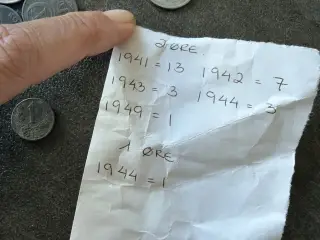 2 ØRE
1941 = 13 1942 = 7
1943 = 3 1944 = 3
1949 = 1
1 ØRE
1944 = 1